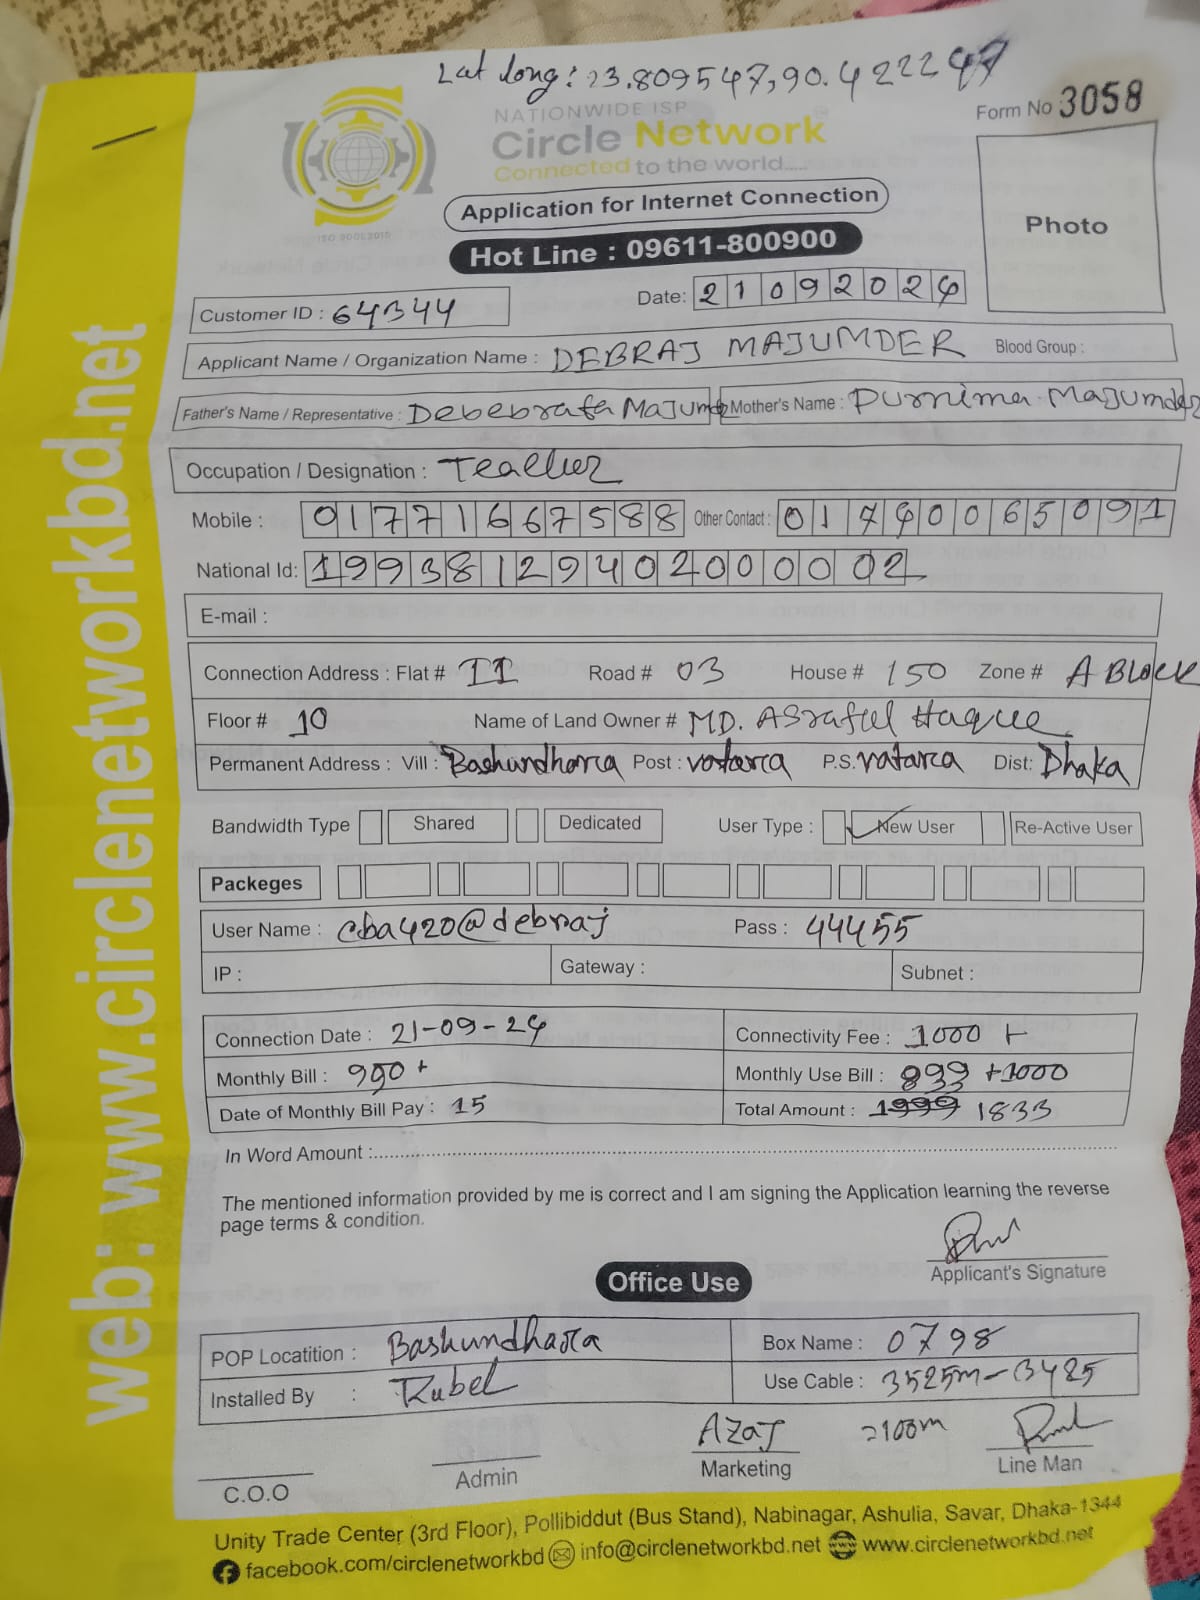 Lat long: 23.809547,90.422247
NATIONWIDE ISP
Circle Network
Connected to the world.....
ISO 9001:2015
Form No 3058
Application for Internet Connection
Hot Line : 09611-800900
Photo
Customer ID : 64344
Date: 21092024
Applicant Name / Organization Name : DEBRAJ MAJUMDER Blood Group :
Father's Name / Representative : Debebrata Majumder Mother's Name : Purnima Majumder
Occupation / Designation : Teacher
Mobile : 01771667588 Other Contact : 01740065091
National Id: 19938129402000002
E-mail :
Connection Address : Flat # II Road # 03 House # 150 Zone # A BLOCK
Floor # 10 Name of Land Owner # MD. Asraful Haque
Permanent Address : Vill : Bashundhara Post : vatara P.S. vatara Dist: Dhaka
Bandwidth Type Shared Dedicated User Type : New User Re-Active User
Packeges
User Name : cba420@debraj Pass : 44455
IP : Gateway : Subnet :
Connection Date : 21-09-24 Connectivity Fee : 1000 +
Monthly Bill : 990 + Monthly Use Bill : 833 +1000
Date of Monthly Bill Pay : 15 Total Amount : 1999 1833
In Word Amount :
The mentioned information provided by me is correct and I am signing the Application learning the reverse
page terms & condition.
Applicant's Signature
Office Use
POP Locatition : Bashundhara Box Name : 0798
Installed By : Rubel Use Cable : 3525m-3425
=100m
AZAJ
C.O.O Admin Marketing Line Man
Unity Trade Center (3rd Floor), Pollibiddut (Bus Stand), Nabinagar, Ashulia, Savar, Dhaka-1344
facebook.com/circlenetworkbd info@circlenetworkbd.net www.circlenetworkbd.net
web: www.circlenetworkbd.net